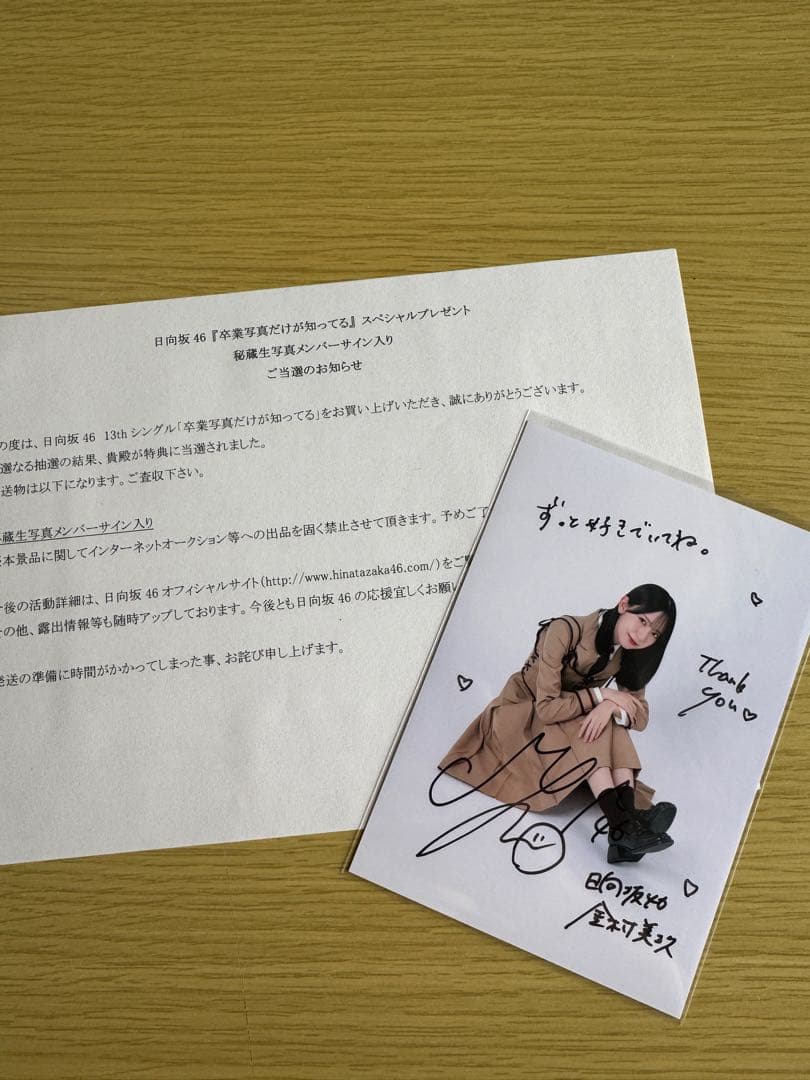 日向坂46『卒業写真だけが知ってる』スペシャルプレゼント
秘蔵生写真メンバーサイン入り
ご当選のお知らせ
の度は、日向坂46 13thシングル「卒業写真だけが知ってる」をお買い上げいただき、誠にありがとうございます。
選なる抽選の結果、貴殿が特典に当選されました。
送物は以下になります。ご査収下さい。
蔵生写真メンバーサイン入り
本景品に関してインターネットオークション等への出品を固く禁止させて頂きます。予めご了
後の活動詳細は、日向坂46オフィシャルサイト(http://www.hinatazaka46.com/)をご
の他、露出情報等も随時アップしております。今後とも日向坂46の応援宜しくお願い
送の準備に時間がかかってしまった事、お詫び申し上げます。
ずっと好きでいてね。
Thank
you♡
46
日向坂46
金村美玖